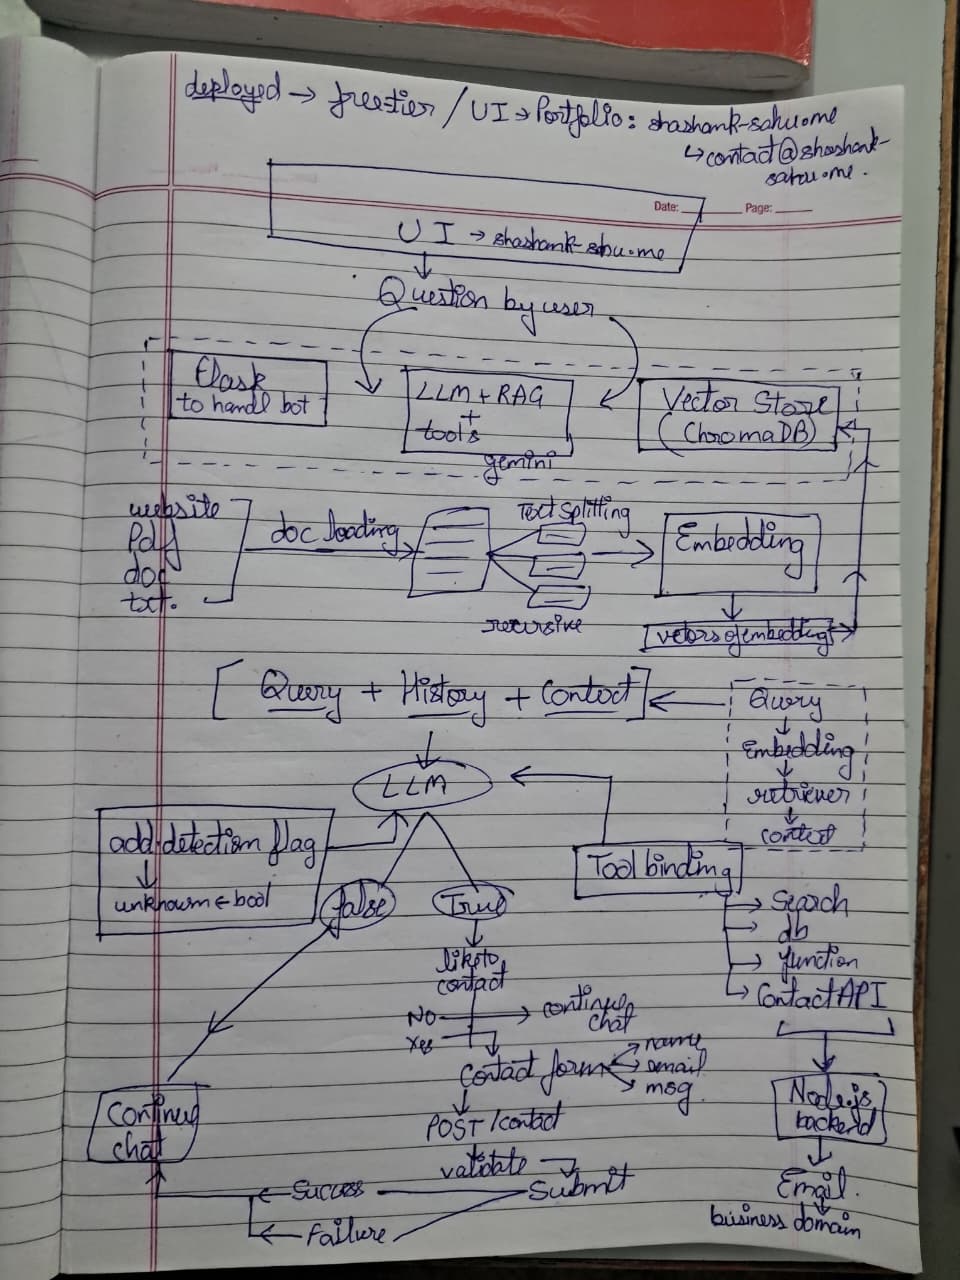 deployed → freetier / UI → Portfolio: shashank-sahu.me
↳ contact@shashank-
sahu.me.
Date: Page:
UI → shashank-sahu.me
Question by user
Flask
to handl bot
LLM + RAG
+
tools
gemini
Vector Store
(ChromaDB)
website
Pdf
doc
txt.
doc loading
Text Splitting
recursive
Embedding
vetors of embedding
[Query + History + Context]
Query
Embedding
retriever
context
LLM
add detection flag
unknown ← bool
false
True
Tool binding
Search
db
function
Contact API
like to
contact
No → continue
chat
Yes
Contact form
name
email
msg
POST /contact
validate
Submit
Continue
chat
Success
Failure
Node.js
backend
Email.
business domain